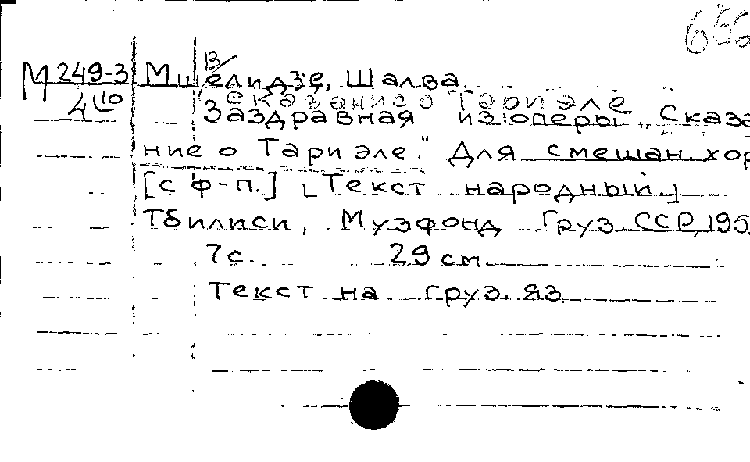 М 249-3
4
Мшвелидзе, Шалва
[Сказание о Тариэле
Заздравная из оперы „Сказа
ние о Тариэле." Для смешан. хор
[с ф-п.] [Текст народный.]
Тбилиси, Музфонд Груз.ССР, 195
7 с. 29 см
Текст на груз. яз.